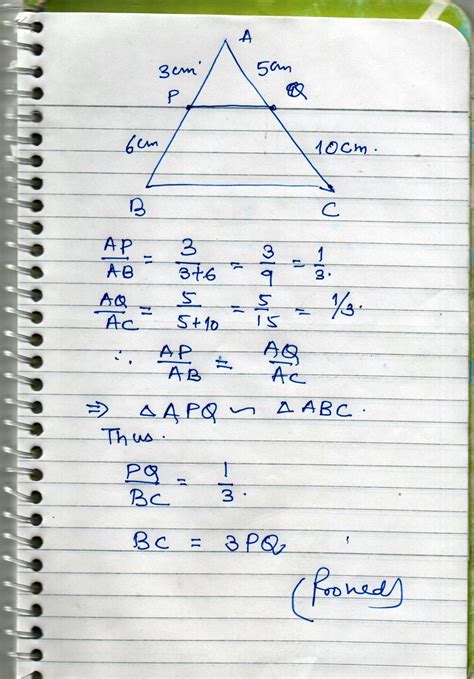 A
3cm 5cm
P Q
6cm 10cm.
B C
AP/AB = 3/3+6 = 3/9 = 1/3.
AQ/AC = 5/5+10 = 5/15 = 1/3.
∴ AP/AB = AQ/AC
⇒ △APQ ∽ △ABC.
Thus.
PQ/BC = 1/3.
BC = 3PQ
(Prooned)